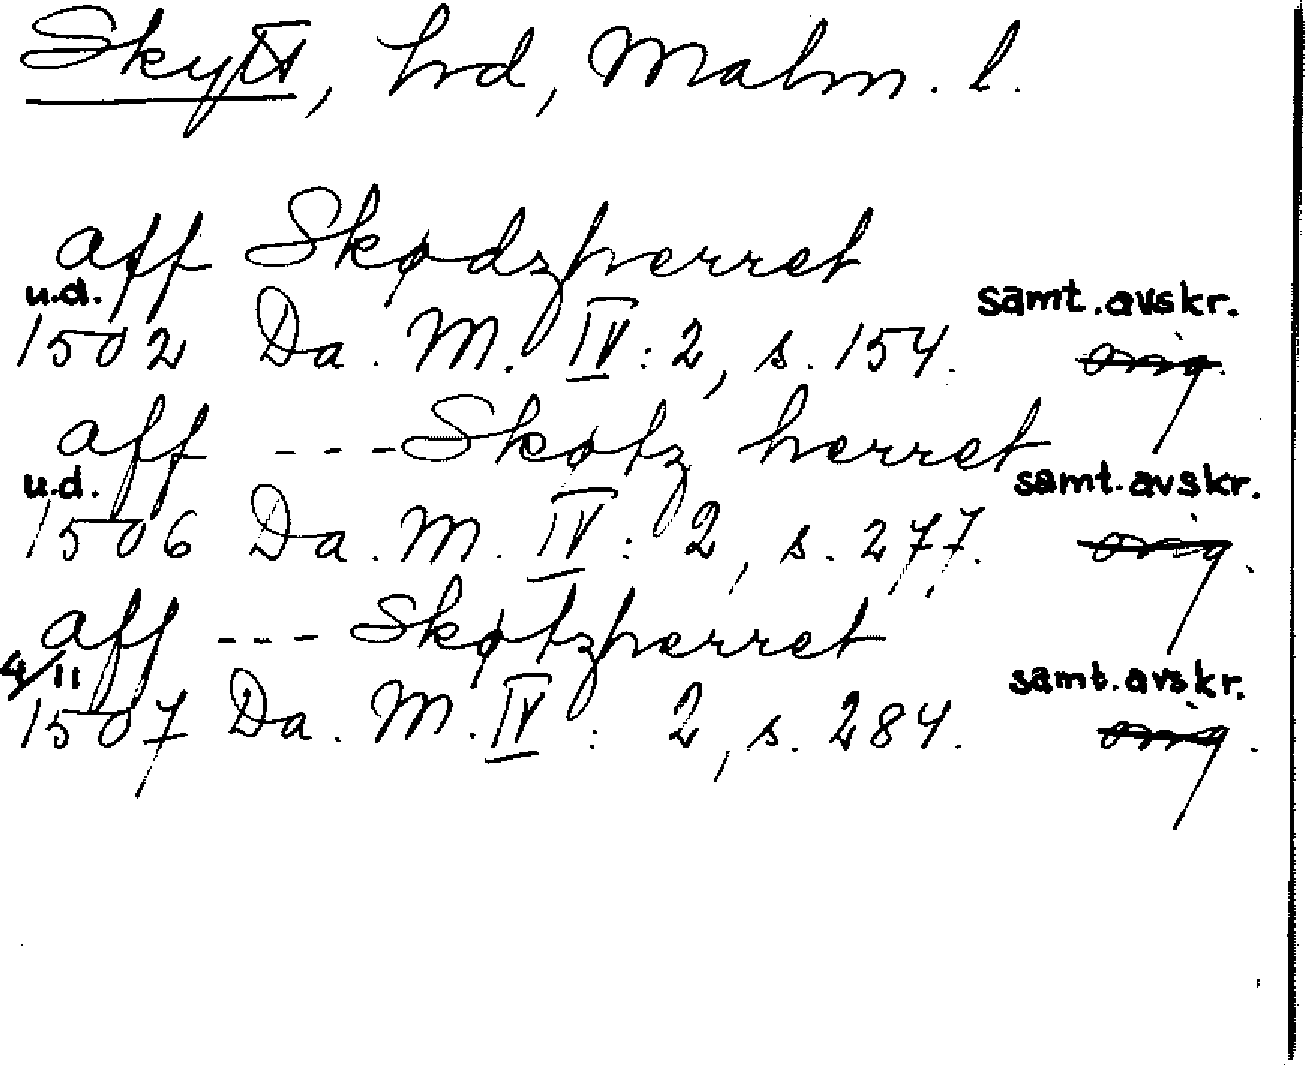 Skytts, hrd, Malm. l.
aff Skødzherret
u.d.
1502 Da. M. IV: 2, s. 154. samt. avskr. orig.
aff --- Skøtz herret
u.d.
1506 Da. M. IV: 2, s. 277. samt. avskr. orig.
aff --- Skøtzherret
4/11
1507 Da. M. IV: 2, s. 284. samt. avskr. orig.